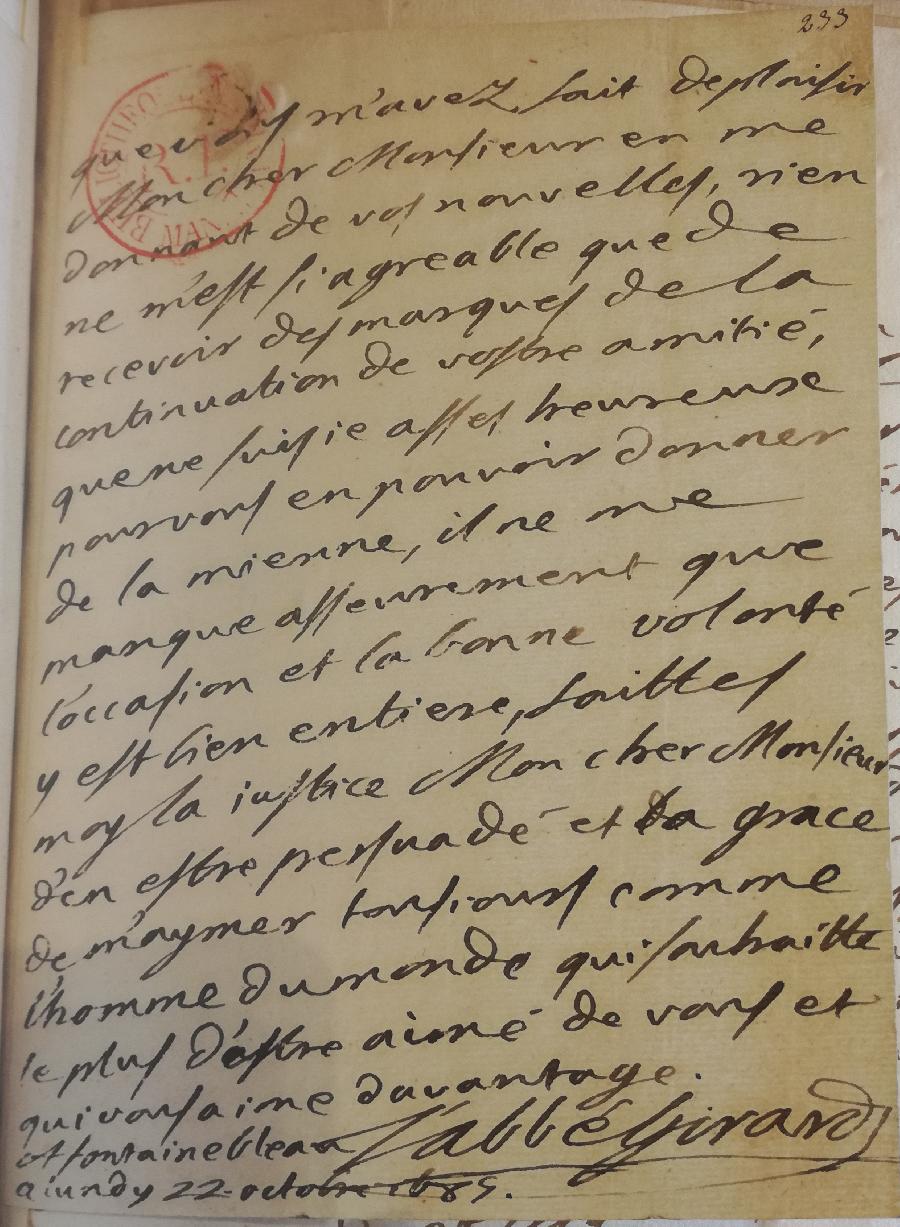 233
que vous m'avez fait de plaisir
Mon cher Monsieur en me
donnant de vos nouvelles, rien
ne m'est si agreable que de
recevoir des marques de la
continuation de vostre amitié,
que ne suis ie asses heureuse
pour vous en pouvoir donner
de la mienne, il ne me
manque asseurement que
l'occasion et la bonne volonté
y est bien entiere, faittes
moy la iustice Mon cher Monsieur
d'en estre persuadé et la grace
de m'aymer tousiours comme
l'homme du monde qui souhaitte
le plus d'estre aimé de vous et
qui vous aime davantage.
L'abbé Girard
A fontainebleau
a lundy 22 octobre 1685.
R.F.